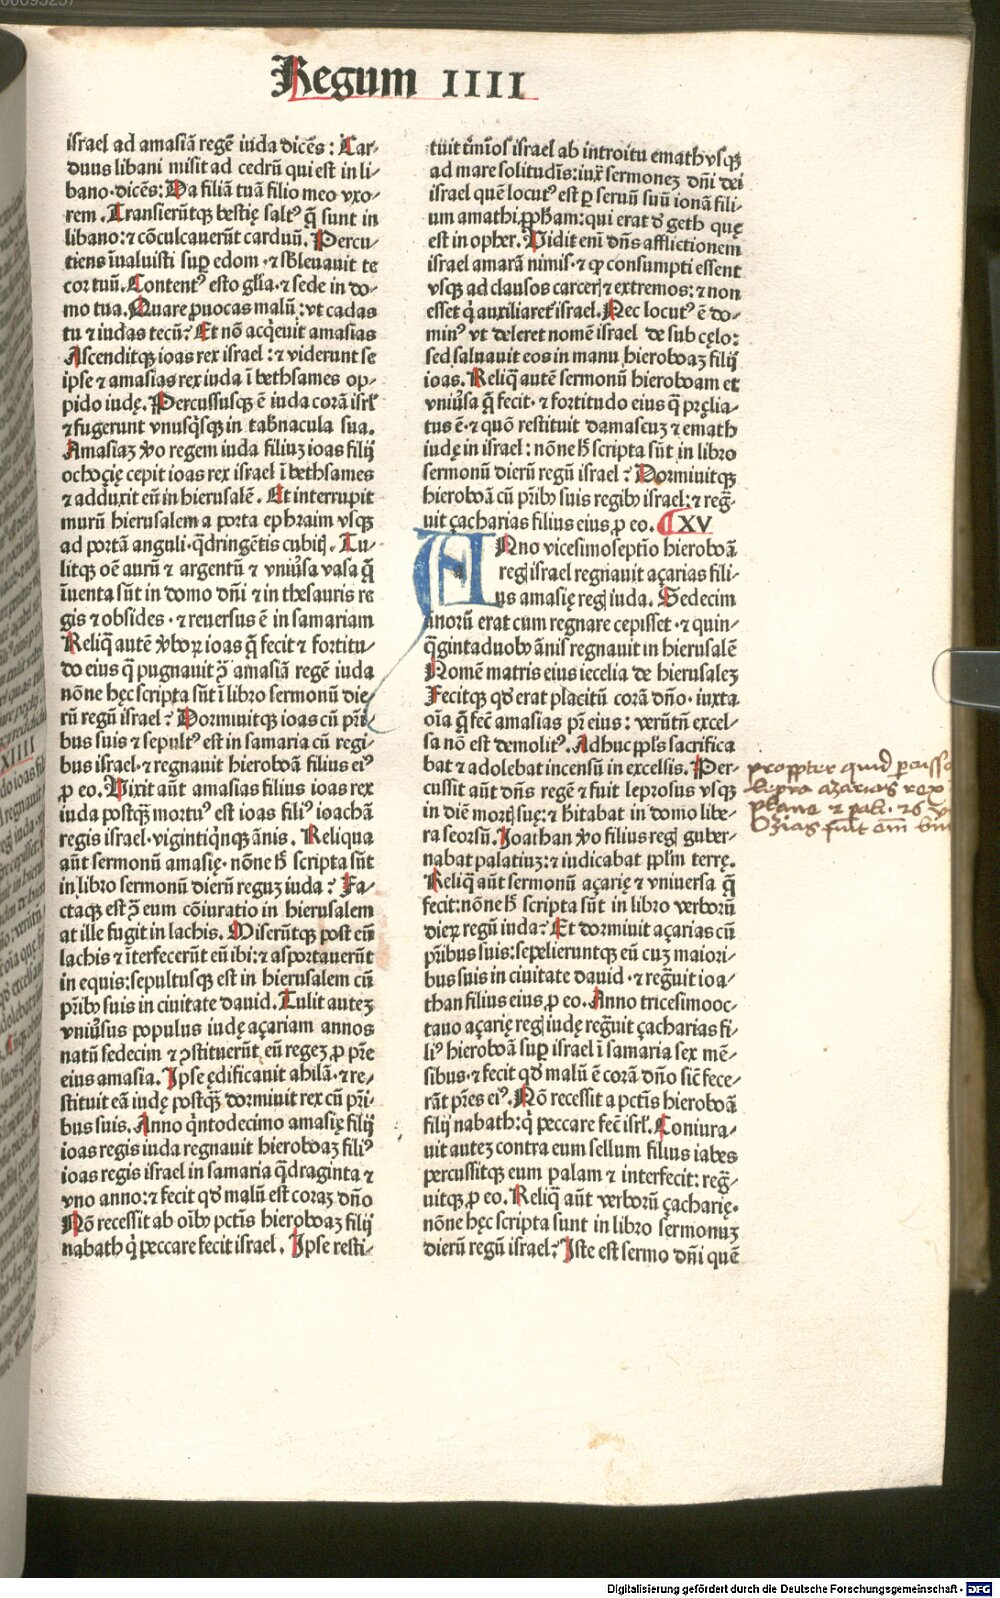 Regum IIII
israel ad amasiā regē iuda dicēs: Car-
duus libani misit ad cedrū qui est in li-
bano·dicēs: Da filiā tuā filio meo vxo-
rem. Transierūtqꝫ bestię saltꝰ q̄ sunt in
libano: ⁊ cōculcauerūt carduū. Percu-
tiens īualuisti suꝑ edom·⁊ sbleuauit te
cor tuū. Contentꝰ esto gl̄ia·⁊ sede in do-
mo tua. Quare ꝓuocas malū: vt cadas
tu ⁊ iudas tecū? Et nō acq̇euit amasias
Ascenditqꝫ ioas rex israel: ⁊ viderunt se
ipse ⁊ amasias rex iuda ī bethsames op-
pido iudę. Percussusqꝫ ē iuda corā isrl̄
⁊ fugerunt vnusq̇sqꝫ in tab̄nacula sua.
Amasiaꝫ v̄o regem iuda filiuꝫ ioas filij
ochoçię cepit ioas rex israel ī bethsames
⁊ adduxit eū in hierusalē. Et interrupit
murū hierusalem a porta ephraim vsqꝫ
ad portā anguli·q̄dringētis cubiti. Tu-
litqꝫ oē aurū ⁊ argentū ⁊ vniūsa vasa q̄
īuenta sūt in domo dn̄i ⁊ in thesauris re
gis ⁊ obsides·⁊ reuersus ē in samariam
Reliq̄ autē v̄boꝝ ioas q̄ fecit ⁊ fortitu-
do eius q̄ pugnauit ꝯ̄ amasiā regē iuda
nōne hęc scripta sūt ī libro sermonū die-
rū regū israel? Dormiuitqꝫ ioas cū pri-
bus suis ⁊ sepultꝰ est in samaria cū regi-
bus israel·⁊ regnauit hieroboā filius eiꝰ
ꝓ eo. Vixit aūt amasias filius ioas rex
iuda postq̄ꝫ mortuꝰ est ioas filiꝰ ioachā
regis israel·vigintiq̇nqꝫ ānis. Reliqua
aūt sermonū amasię·nōne h̄ scripta sūt
in libro sermonū dierū reguꝫ iuda? Fa-
ctaqꝫ est ꝯ̄ eum cōiuratio in hierusalem
at ille fugit in lachis. Miserūtqꝫ post eū
lachis ⁊ īterfecerūt eū ibi: ⁊ asportauerūt
in equis: sepultusqꝫ est in hierusalem cū
pr̄ibꝫ suis in ciuitate dauid. Tulit auteꝫ
vniūsus populus iudę açariam annos
natū sedecim ⁊ ꝯstituerūt eū regeꝫ ꝓ pr̄e
eius amasia. Ipse ędificauit ahilā·⁊ re-
stituit eā iudę postq̄ꝫ dormiuit rex cū pri-
bus suis. Anno q̇ntodecimo amasię filij
ioas regis iuda regnauit hieroboaꝫ filiꝰ
ioas regis israel in samaria q̄draginta ⁊
vno anno: ⁊ fecit qd̄ malū est coraꝫ dn̄o
Nō recessit ab oībꝫ pctīs hieroboaꝫ filij
nabath q̇ peccare fecit israel. Ipse resti-
tuit tm̄ios israel ab introitu emath vsqꝫ
ad mare solitudīs: iux̄ sermoneꝫ dn̄i dei
israel quē locutꝰ est ꝑ seruū suū ionā fili-
um amathi ꝓph̄am: qui erat d̄ geth quę
est in opher. Vidit enī dn̄s afflictionem
israel amarā nimis·⁊ ꝙ consumpti essent
vsqꝫ ad clausos carceri ⁊ extremos: ⁊ non
esset q̇ auxiliaret israel. Nec locutꝰ ē do-
minꝰ vt deleret nomē israel de sub cęlo:
sed saluauit eos in manu hieroboaꝫ filij
ioas. Reliq̄ autē sermonū hieroboam et
vniūsa q̄ fecit·⁊ fortitudo eius q̄ pręlia-
tus ē·⁊ quō restituit damascuꝫ ⁊ emath
iudę in israel: nōne h̄ scripta sūt in libro
sermonū dierū regū israel? Dormiuitqꝫ
hieroboā cū pr̄ibꝫ suis regibꝫ israel: ⁊ reḡ-
uit çacharias filius eius ꝓ eo. XV
ANno vicesimoseptīo hieroboā
regi israel regnauit açarias fili-
us amasię regi iuda. Sedecim
ānorū erat cum regnare cepisset·⁊ quin-
q̄gintaduobꝫ ānis regnauit in hierusalē
Nomē matris eius iecelia de hierusaleꝫ
Fecitqꝫ qd̄ erat placitū corā dn̄o·iuxta
oīa q̄ fec̄ amasias pr̄ eius: verūtn̄ excel-
sa nō est demolitꝰ. Adhuc ppl̄s sacrifica
bat ⁊ adolebat incensū in excelsis. Per-
cussit aūt dn̄s regē ⁊ fuit leprosus vsqꝫ
in diē morti suę: ⁊ hitabat in domo libe-
ra seorsū. Joathan v̄o filius regi guber-
nabat palatiuꝫ: ⁊ iudicabat ppl̄m terrę.
Reliq̄ aūt sermonū açarię ⁊ vniuersa q̄
fecit: nōne h̄ scripta sūt in libro verborū
dieꝝ regū iuda? Et dormiuit açarias cū
pr̄ibus suis: sepelieruntqꝫ eū cuꝫ maiori-
bus suis in ciuitate dauid·⁊ reḡuit ioa-
than filius eius ꝓ eo. Anno tricesimooc-
tauo açarię regi iudę reḡuit çacharias fi-
liꝰ hieroboā suꝑ israel ī samaria sex mē-
sibus·⁊ fecit qd̄ malū ē corā dn̄o sic̄ fece-
rāt pr̄es eiꝰ. Nō recessit a pctīs hieroboā
filij nabath: q̇ peccare fec̄ isrl̄. Coniura-
uit auteꝫ contra eum sellum filius iabes
percussitqꝫ eum palam ⁊ interfecit: reḡ-
uitqꝫ ꝓ eo. Reliq̄ aūt verborū çacharię·
nōne hęc scripta sunt in libro sermonuꝫ
dierū regū israel? Iste est sermo dn̄i quē
proppter quid
lepra azarias rex
Ozias fuit
Digitalisierung gefördert durch die Deutsche Forschungsgemeinschaft - DFG